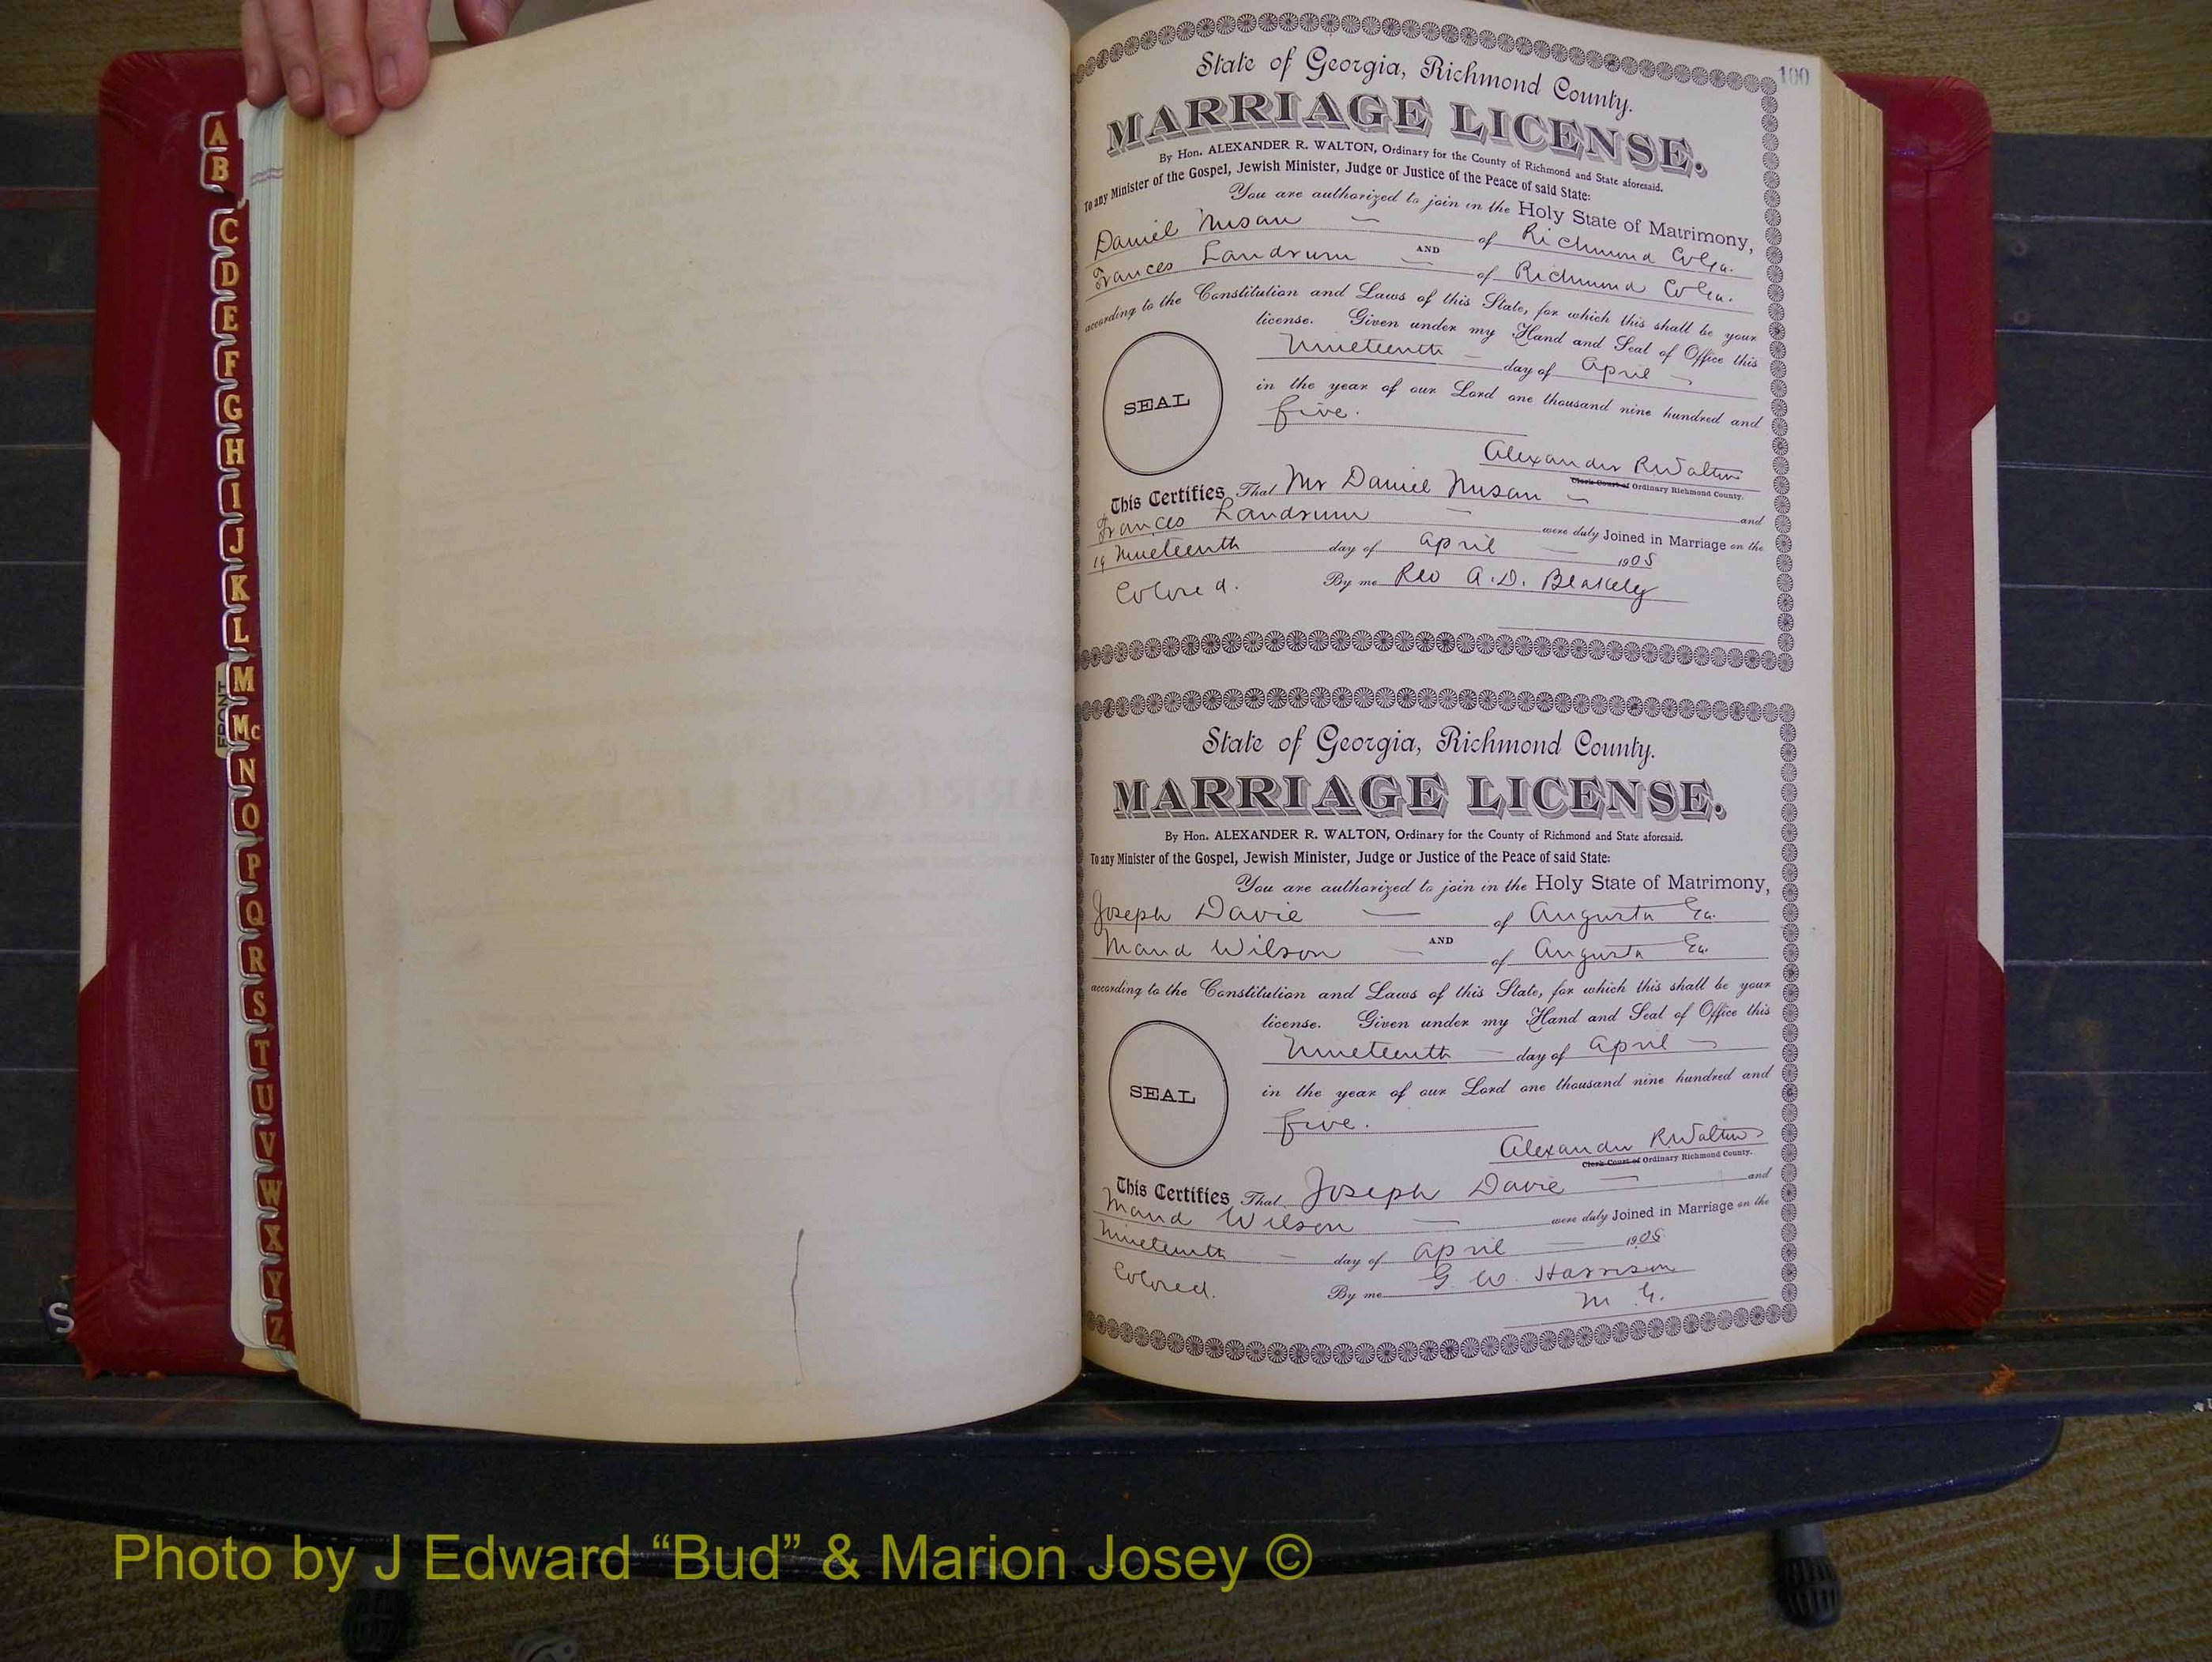 A
B
C
D
E
F
G
H
I
J
K
L
M
Mc
N
O
P
Q
R
S
T
U
V
W
X
Y
Z
FRONT
100
State of Georgia, Richmond County.
MARRIAGE LICENSE.
By Hon. ALEXANDER R. WALTON, Ordinary for the County of Richmond and State aforesaid.
To any Minister of the Gospel, Jewish Minister, Judge or Justice of the Peace of said State:
You are authorized to join in the Holy State of Matrimony,
Daniel of Richmond Co Ga.
AND
Frances Landrum of Richmond Co Ga.
according to the Constitution and Laws of this State, for which this shall be your
license. Given under my Hand and Seal of Office this
Nineteenth day of April
in the year of our Lord one thousand nine hundred and
five.
SEAL
Alexander R Walton
Clerk Court of Ordinary Richmond County.
This Certifies That Mr Daniel and
Frances Landrum were duly Joined in Marriage on the
19 Nineteenth day of April 1905
Colored. By me Rev A. D. Blakely
State of Georgia, Richmond County.
MARRIAGE LICENSE.
By Hon. ALEXANDER R. WALTON, Ordinary for the County of Richmond and State aforesaid.
To any Minister of the Gospel, Jewish Minister, Judge or Justice of the Peace of said State:
You are authorized to join in the Holy State of Matrimony,
Joseph Davie of Augusta Ga.
AND
Maud Wilson of Augusta Ga.
according to the Constitution and Laws of this State, for which this shall be your
license. Given under my Hand and Seal of Office this
Nineteenth day of April
in the year of our Lord one thousand nine hundred and
five.
SEAL
Alexander R Walton
Clerk Court of Ordinary Richmond County.
This Certifies That Joseph Davie and
Maud Wilson were duly Joined in Marriage on the
Nineteenth day of April 1905
Colored. By me G. W. Harrison
M. G.
S
Photo by J Edward “Bud” & Marion Josey ©